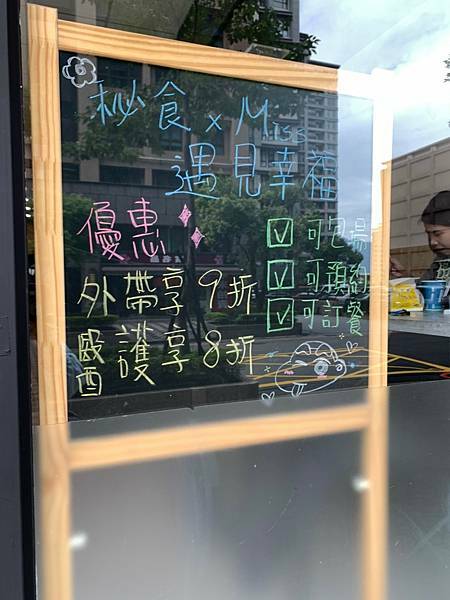 秘食 x Miss
遇見幸福
優惠
外帶享9折
醫護享8折
☑ 可包場
☑ 可預約
☑ 可訂餐